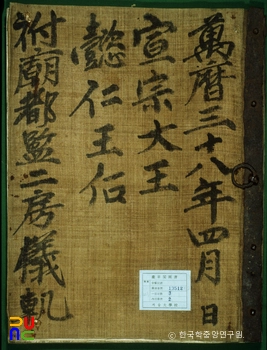 萬曆三十八年四月 日
宣宗大王
懿仁王后
祔廟都監二房儀軌
ⓒ 한국학중앙연구원.